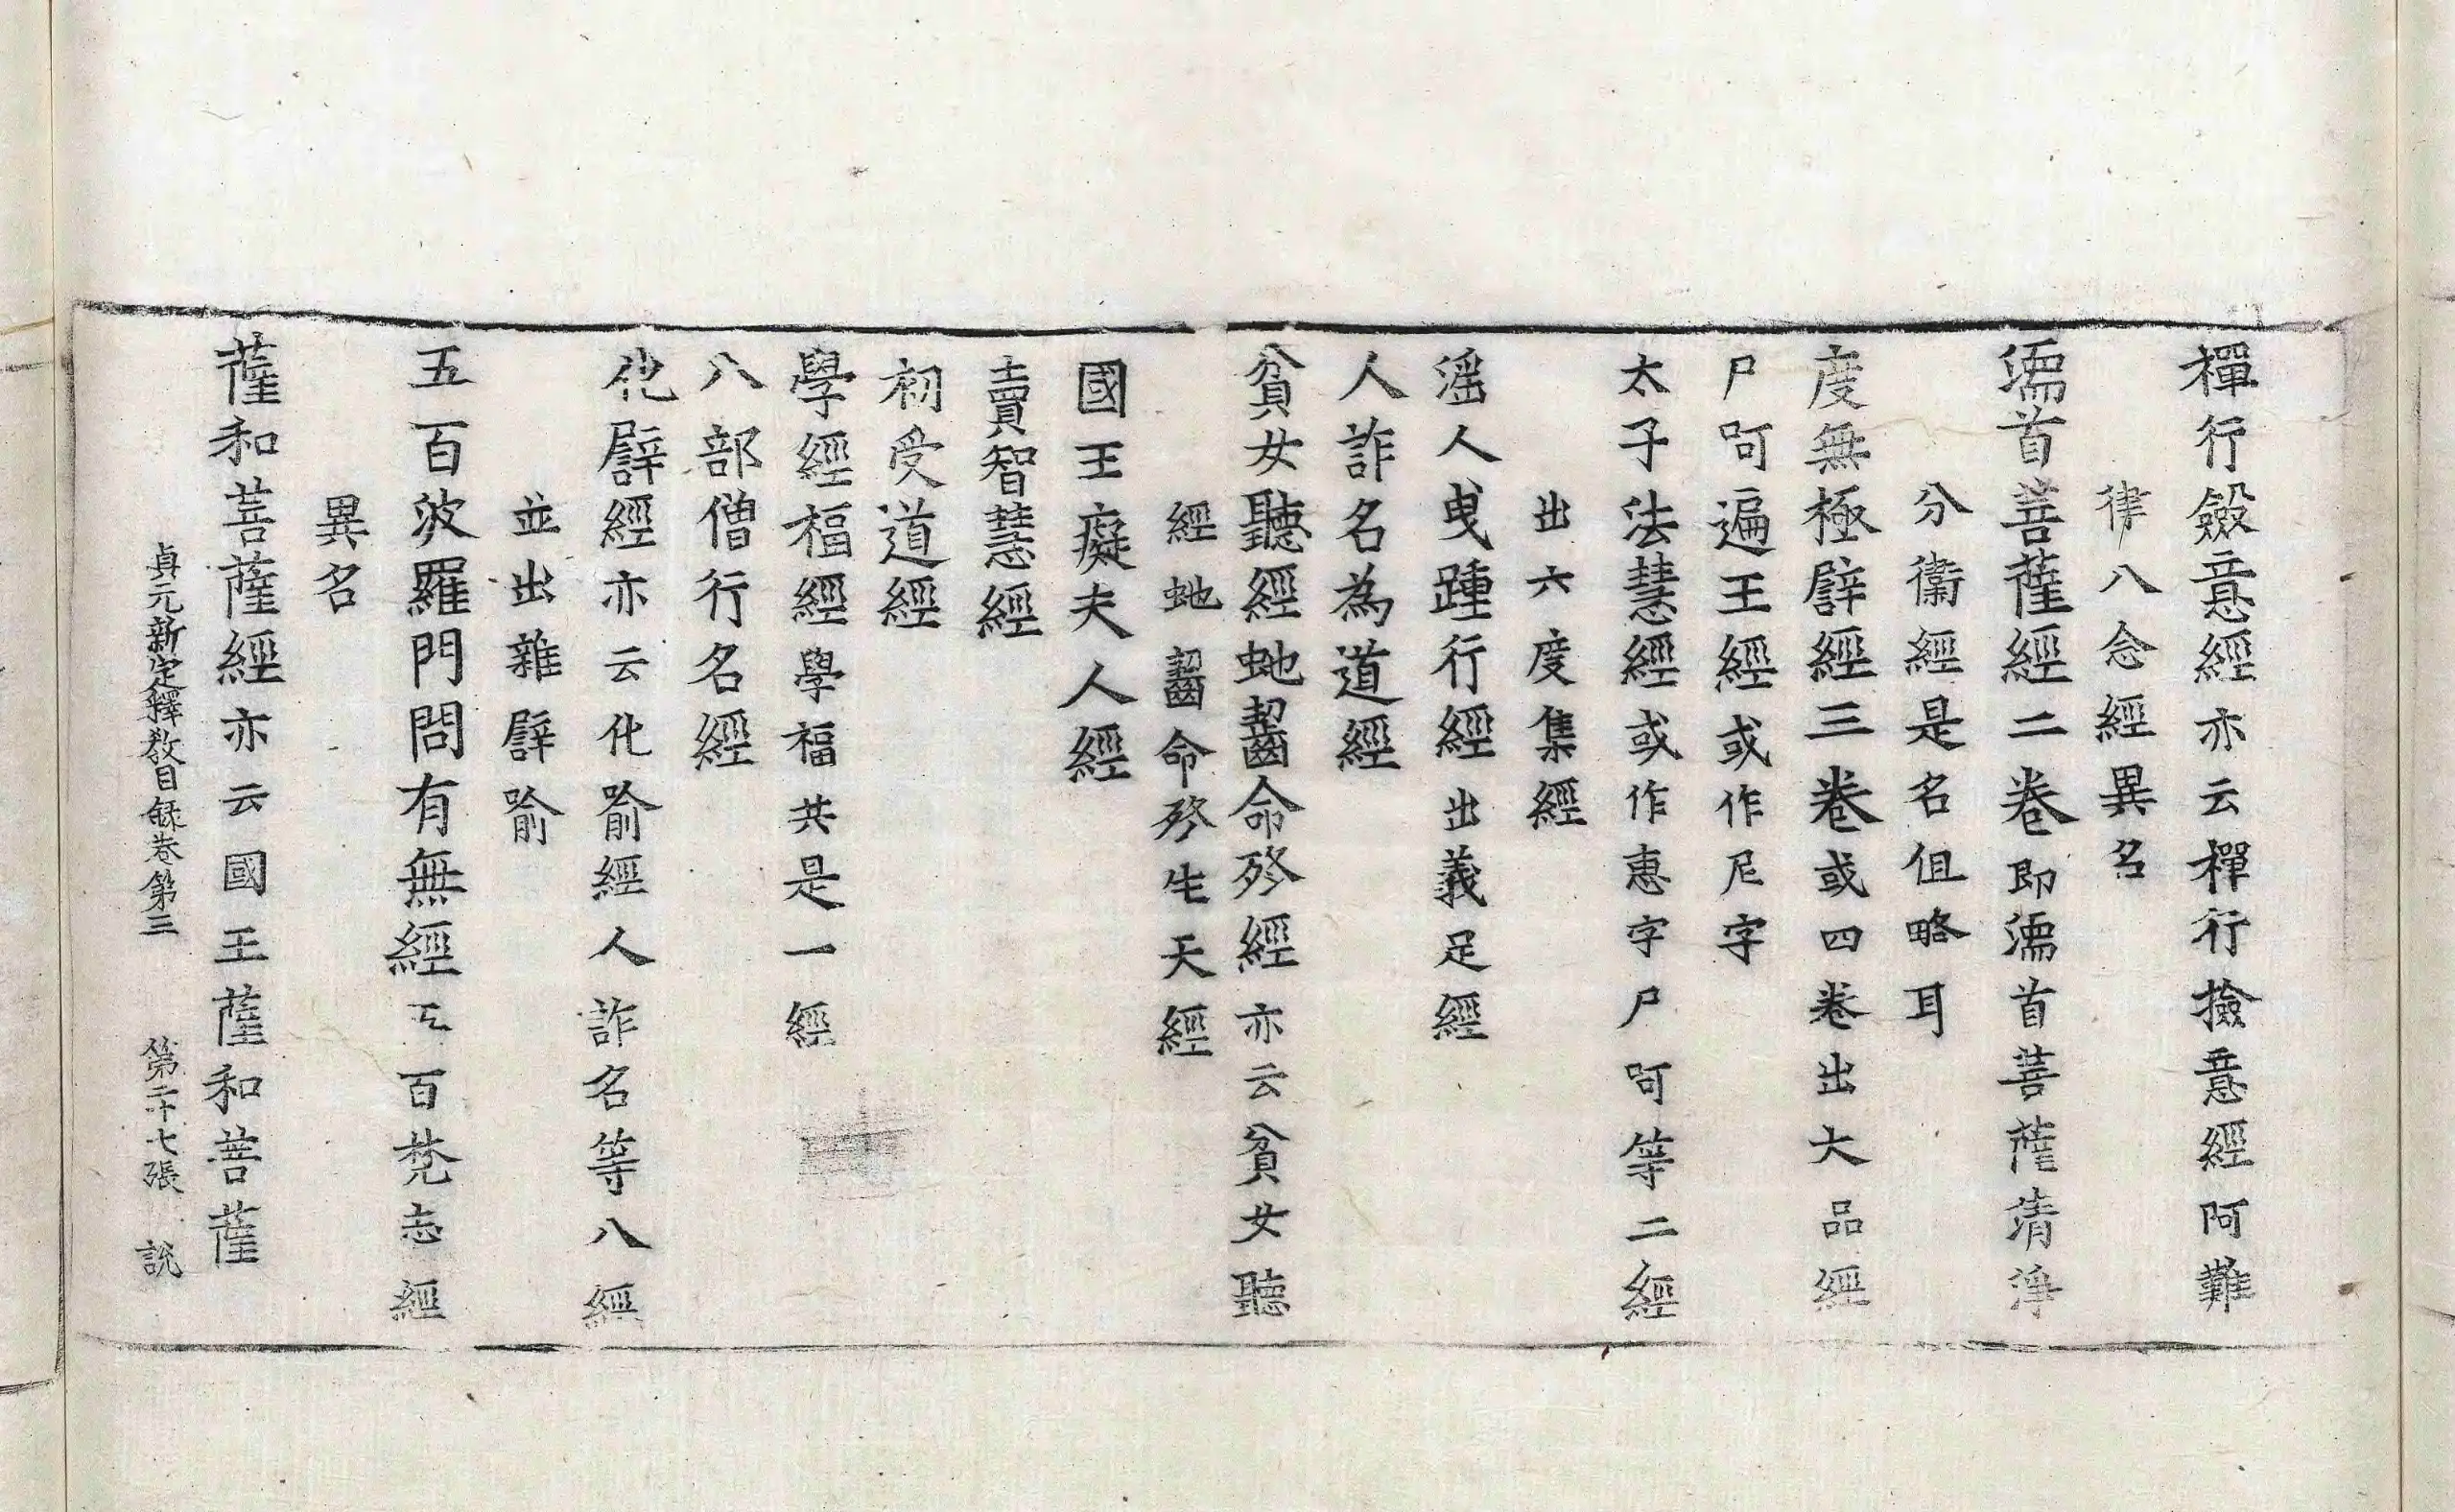 禪行斂意經亦云禪行撿意經阿難
律八念經異名
濡首菩薩經二卷即濡首菩薩清淨
分衞經是名但略耳
度無極譬經三卷或四卷出大品經
尸呵遍王經或作尼字
太子法慧經或作惠字尸呵等二經
出六度集經
滛人曳踵行經出義足經
人詐名為道經
貧女聽經虵齧命終經亦云貧女聽
經虵齧命終生天經
國王癡夫人經
賣智慧經
初受道經
學經福經學福共是一經
八部僧行名經
化譬經亦云化喻經人詐名等八經
並出雜譬喻
五百波羅門問有無經五百梵志經
異名
薩和菩薩經亦云國王薩和菩薩
貞元新定釋教目録卷第三 第二十七張 說